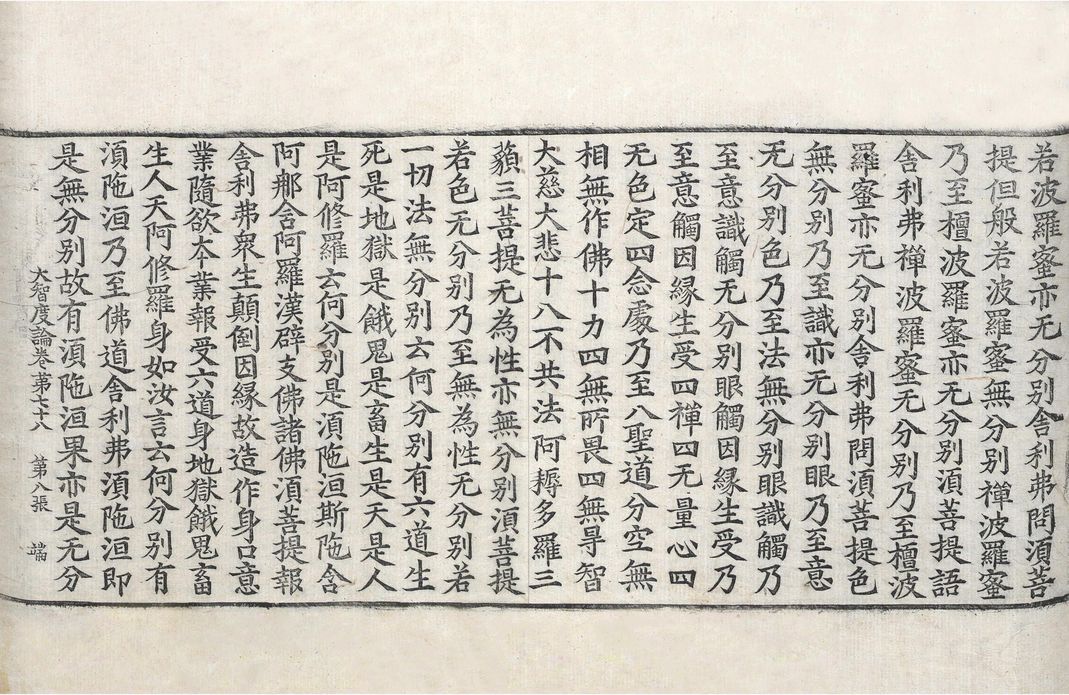 若波羅蜜亦无分别舎利弗問湏菩
提但般若波羅蜜無分别禪波羅蜜
乃至檀波羅蜜亦无分别湏菩提語
舎利弗禪波羅蜜无分别乃至檀波
羅蜜亦无分别舎利弗問湏菩提色
無分别乃至識亦无分别眼乃至意
无分别色乃至法無分别眼識觸乃
至意識觸无分别眼觸因縁生受乃
至意觸因縁生受四禪四无量心四
无色定四念處乃至八聖道分空無
相無作佛十力四無所畏四無㝵智
大慈大悲十八不共法阿耨多羅三
藐三菩提无為性亦無分别湏菩提
若色无分别乃至無為性无分别若
一切法無分别云何分别有六道生
死是地獄是餓鬼是畜生是天是人
是阿修羅云何分别是湏陁洹斯陁含
阿那舎阿羅漢辟支佛諸佛湏菩提報
舎利弗衆生顛倒因縁故造作身口意
業隨欲夲業報受六道身地獄餓鬼畜
生人天阿修羅身如汝言云何分别有
湏陁洹乃至佛道舎利弗湏陁洹即
是無分别故有湏陁洹果亦是无分
大智度論卷苐七十八 第八張 端